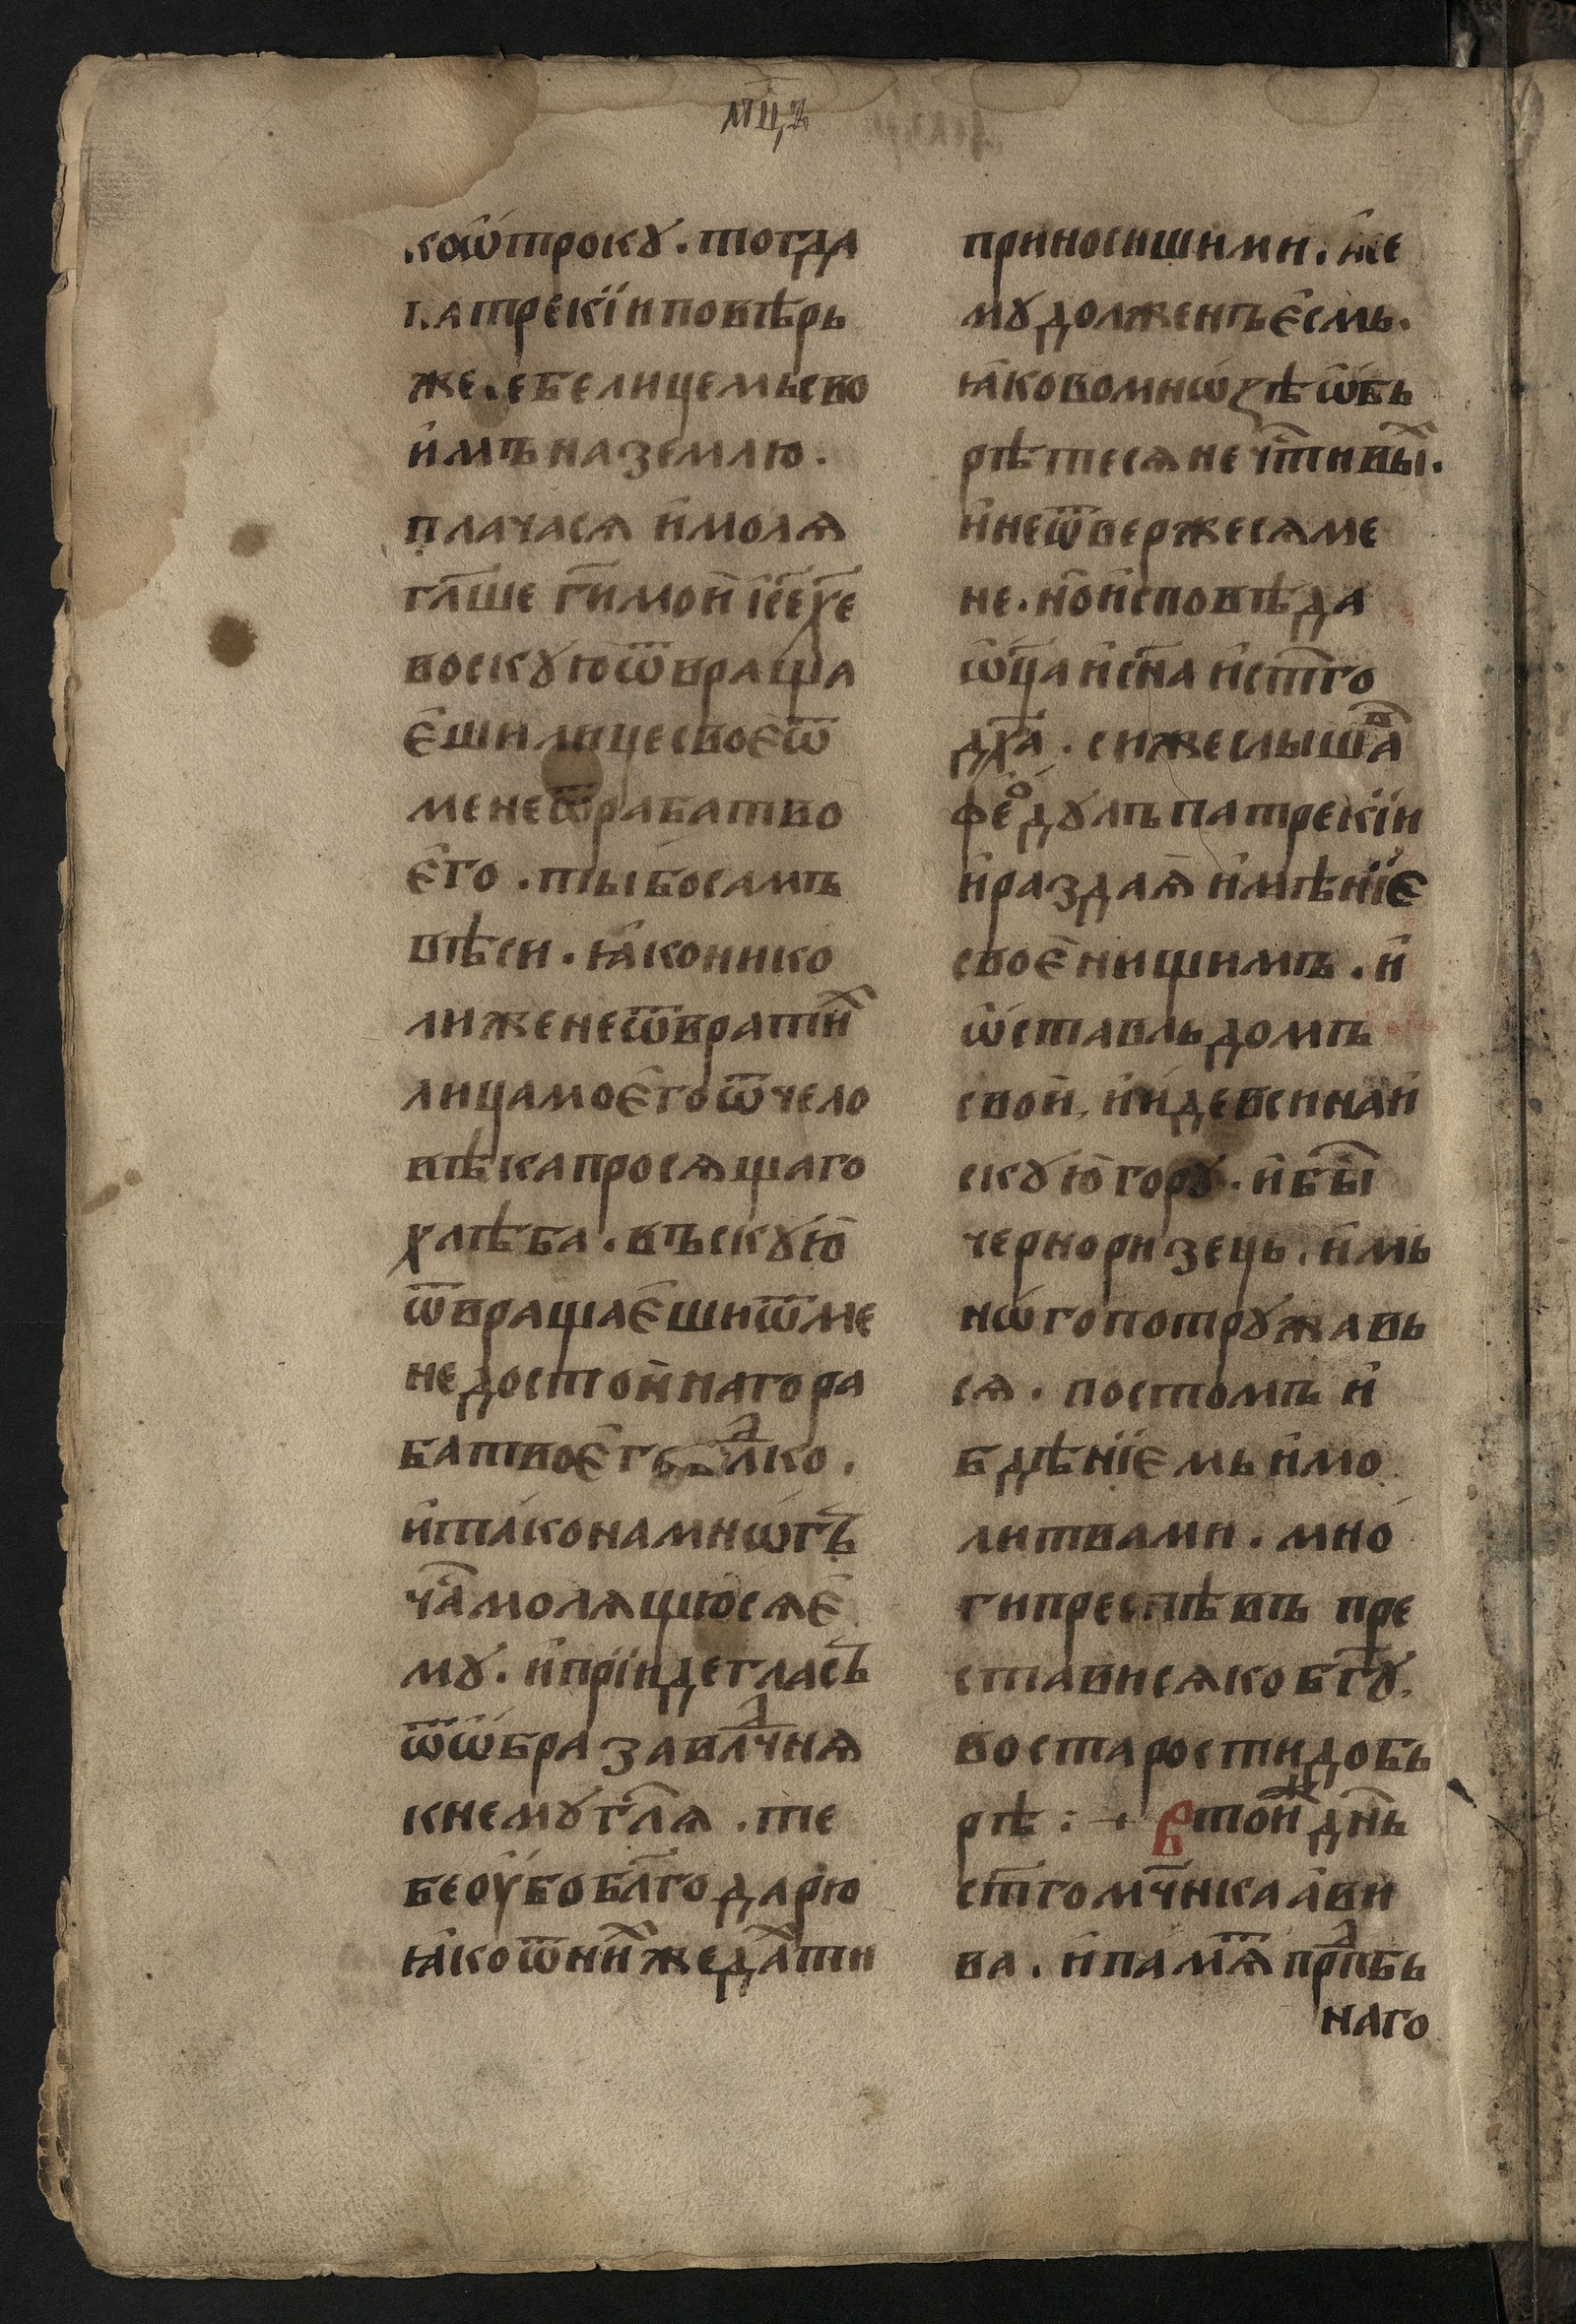 мц҃ъ
ко ѿтрокꙋ . тогда
патрекїи повѣрь
же себе лицемь сво
имъ на землю .
плачася и моляꙗ
гл҃ше г҃и мои ꙇ҃се х҃е
воскꙋю ѿвраща
єши лице своє ѿ
мене ѿ раба тво
єго . ты бо самъ
вѣси . ꙗко нико
лиже не ѿврати
лица моєго ѿ чело
вѣка просящаго
хлѣба . въскꙋю
ѿвращаєши ѿ ме
недостойнаго ра
ба твоєго влⷣко .
и тако на мнѡгъ
ча҃ молящюся є
мꙋ . и прїиде гласъ
ѿ ѡбраза влⷣчня
к немꙋ гл҃я . те
бе оубо бл҃годарю
ꙗко ѿнихже дати
приносиши ми . же
мꙋ долженъ єсмь .
ꙗко во мнѡзѣ ѡбь
рѣтеся неч҃тивыⷯ .
и не ѿвержеся ме
не . но исповѣда
ѡц҃а и сн҃а и ст҃го
дх҃а . сиже слышаⷡ
феѡдꙋлъ патрекїи
и раздая имѣнїє
своє нищимъ . и
ѡставль домъ
свой . и иде в синаи
скꙋю горꙋ . и бы҃
черноризець . и мь
нѡго потрꙋжавь
ся . постомъ и
бдѣнїємь и мо
литвами . мно
ги преспѣвъ пре
ставися ко бг҃ꙋ .
во старости добь
рѣ : + в тойⷤ дн҃ь
ст҃го мч҃нка ави
ва . и памꙗⷮ прпⷣбь
наго